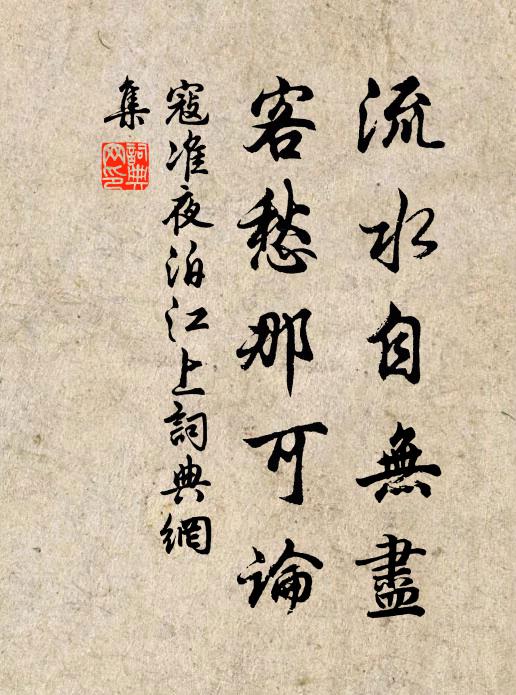 流水自無盡
客愁那可論
寇准夜泊江上詞典網
集
詞典網印